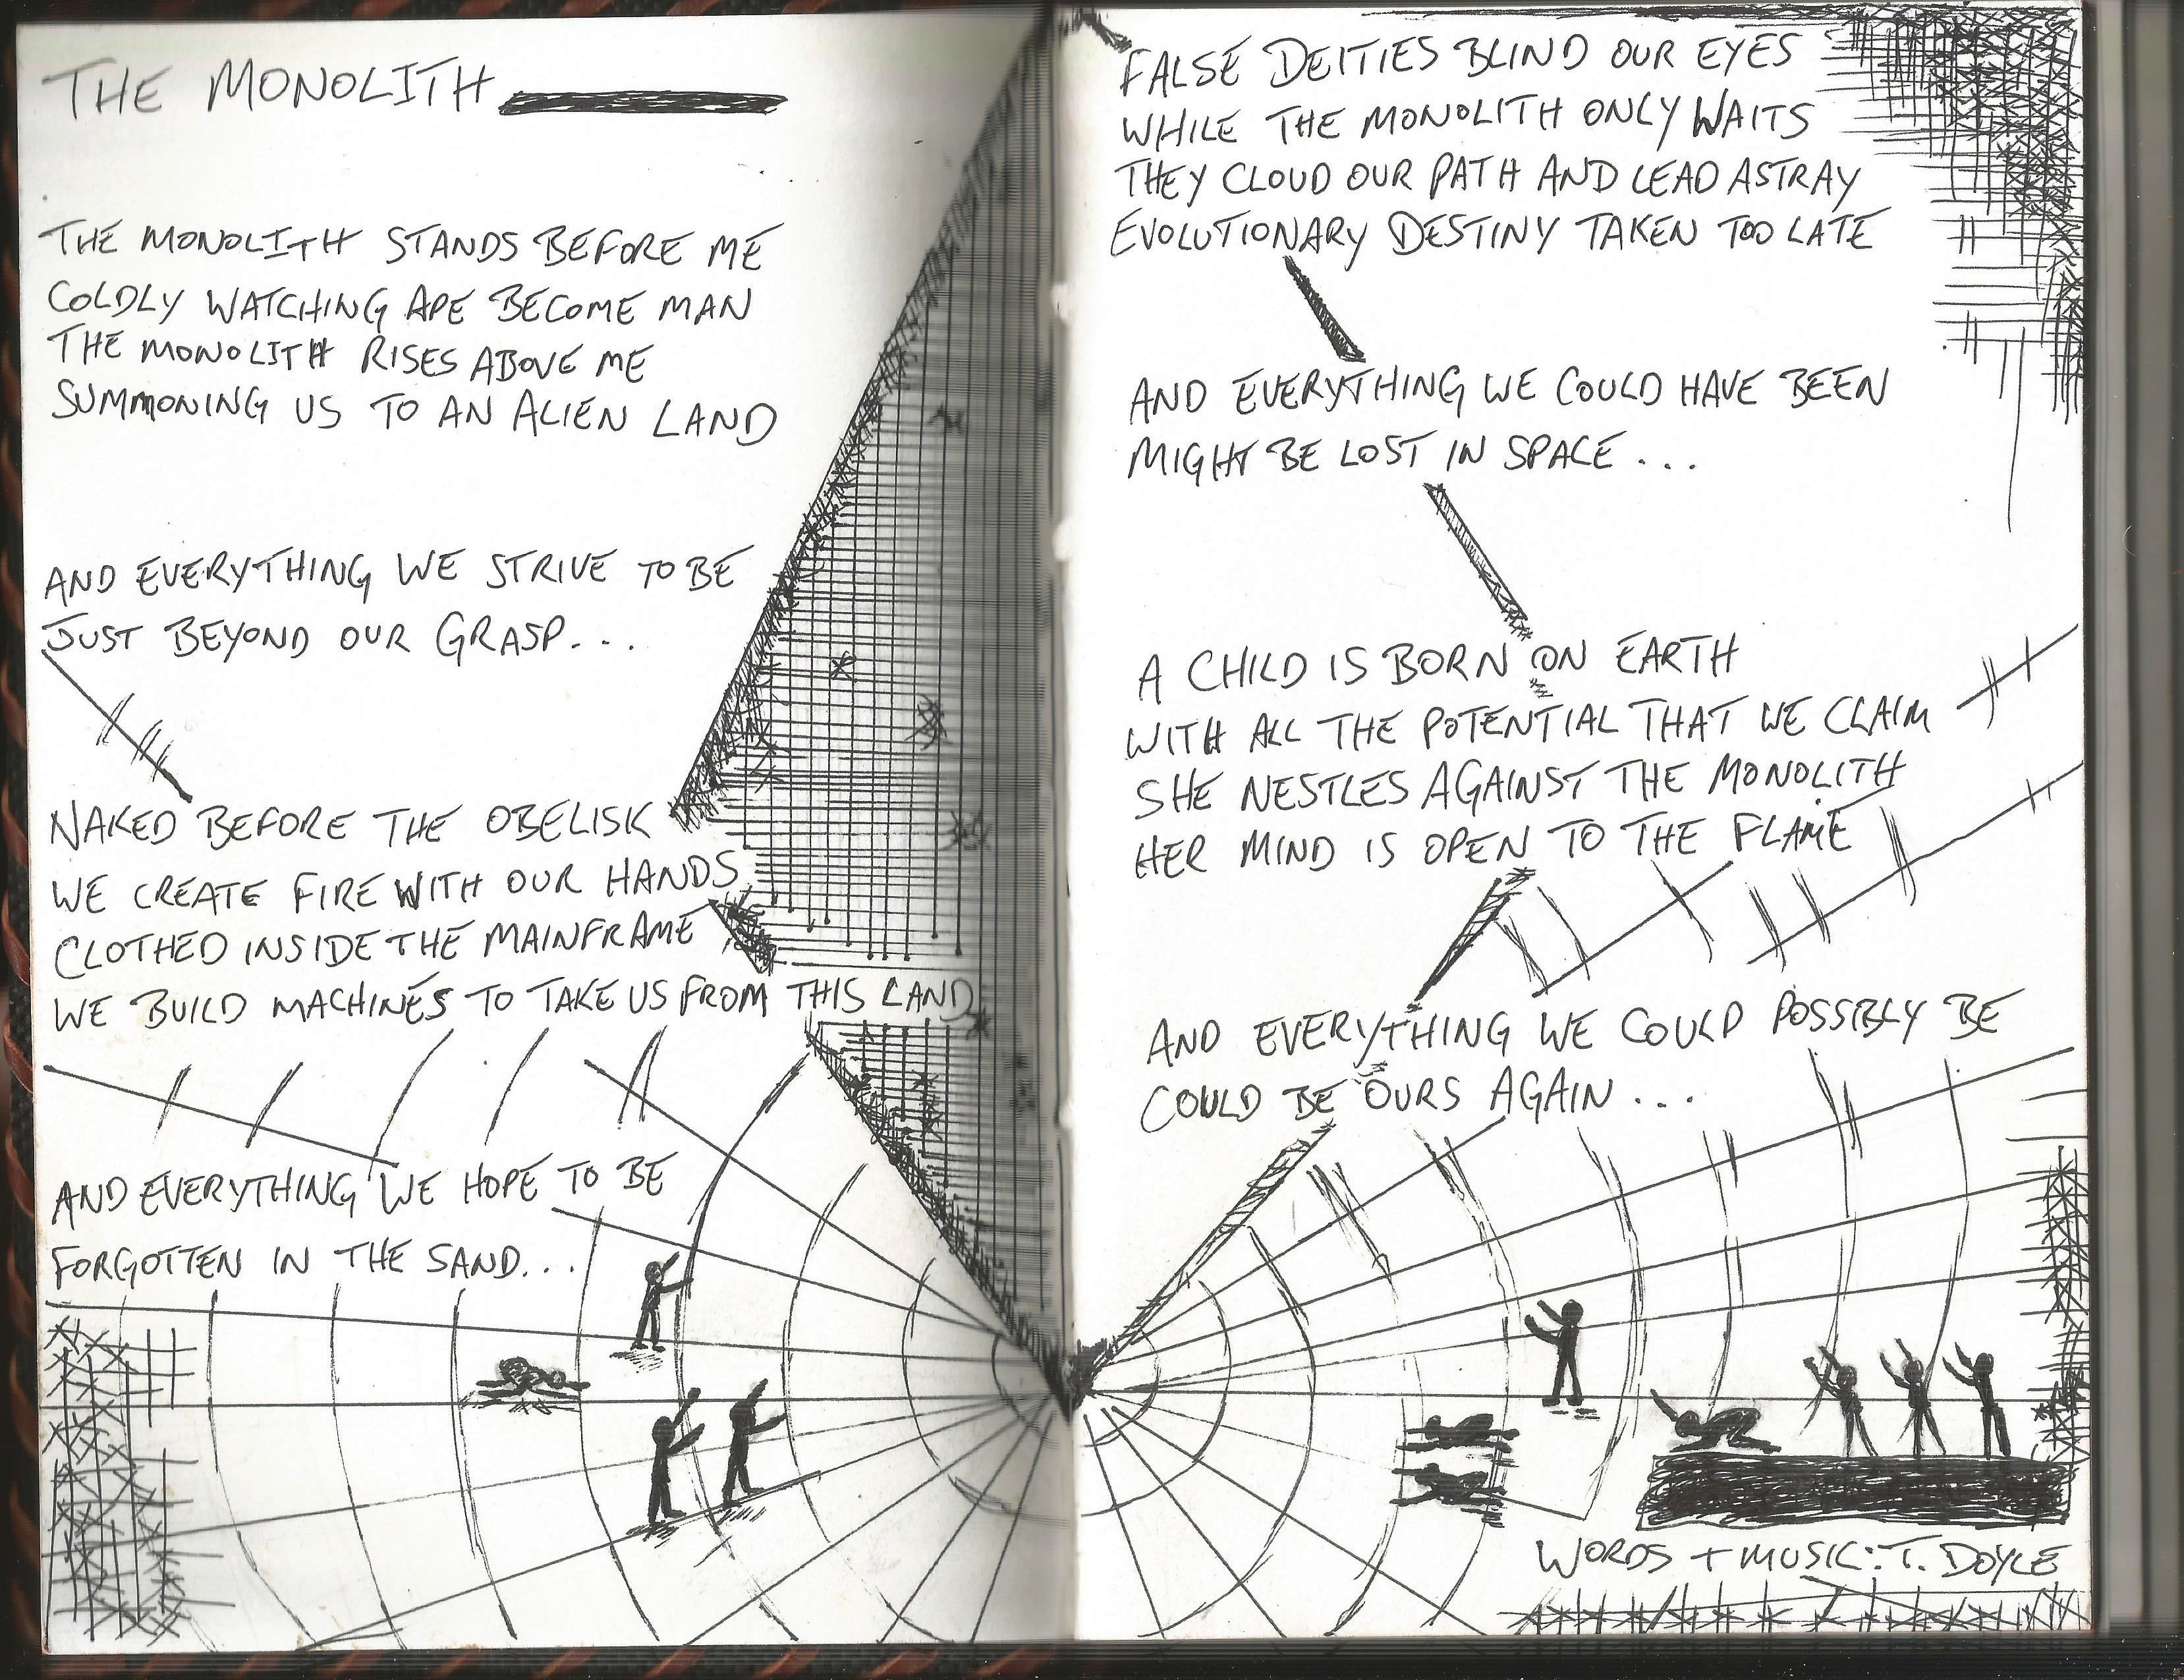 THE MONOLITH
THE MONOLITH STANDS BEFORE ME
COLDLY WATCHING APE BECOME MAN
THE MONOLITH RISES ABOVE ME
SUMMONING US TO AN ALIEN LAND
AND EVERYTHING WE STRIVE TO BE
JUST BEYOND OUR GRASP...
NAKED BEFORE THE OBELISK
WE CREATE FIRE WITH OUR HANDS
CLOTHED INSIDE THE MAINFRAME
WE BUILD MACHINES TO TAKE US FROM THIS LAND
AND EVERYTHING WE HOPE TO BE
FORGOTTEN IN THE SAND...
FALSE DEITIES BLIND OUR EYES
WHILE THE MONOLITH ONLY WAITS
THEY CLOUD OUR PATH AND LEAD ASTRAY
EVOLUTIONARY DESTINY TAKEN TOO LATE
AND EVERYTHING WE COULD HAVE BEEN
MIGHT BE LOST IN SPACE...
A CHILD IS BORN ON EARTH
WITH ALL THE POTENTIAL THAT WE CLAIM
SHE NESTLES AGAINST THE MONOLITH
HER MIND IS OPEN TO THE FLAME
AND EVERYTHING WE COULD POSSIBLY BE
COULD BE OURS AGAIN...
WORDS + MUSIC: T. DOYLE